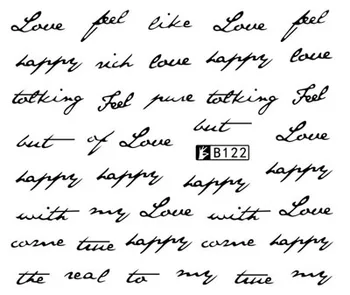 Love feel like Love feel
happy rich love happy love
talking Feel pure talking Feel
but of Love but Love
B122
happy happy happy happy
with my Love with Love
come true happy come happy
the real to my true my